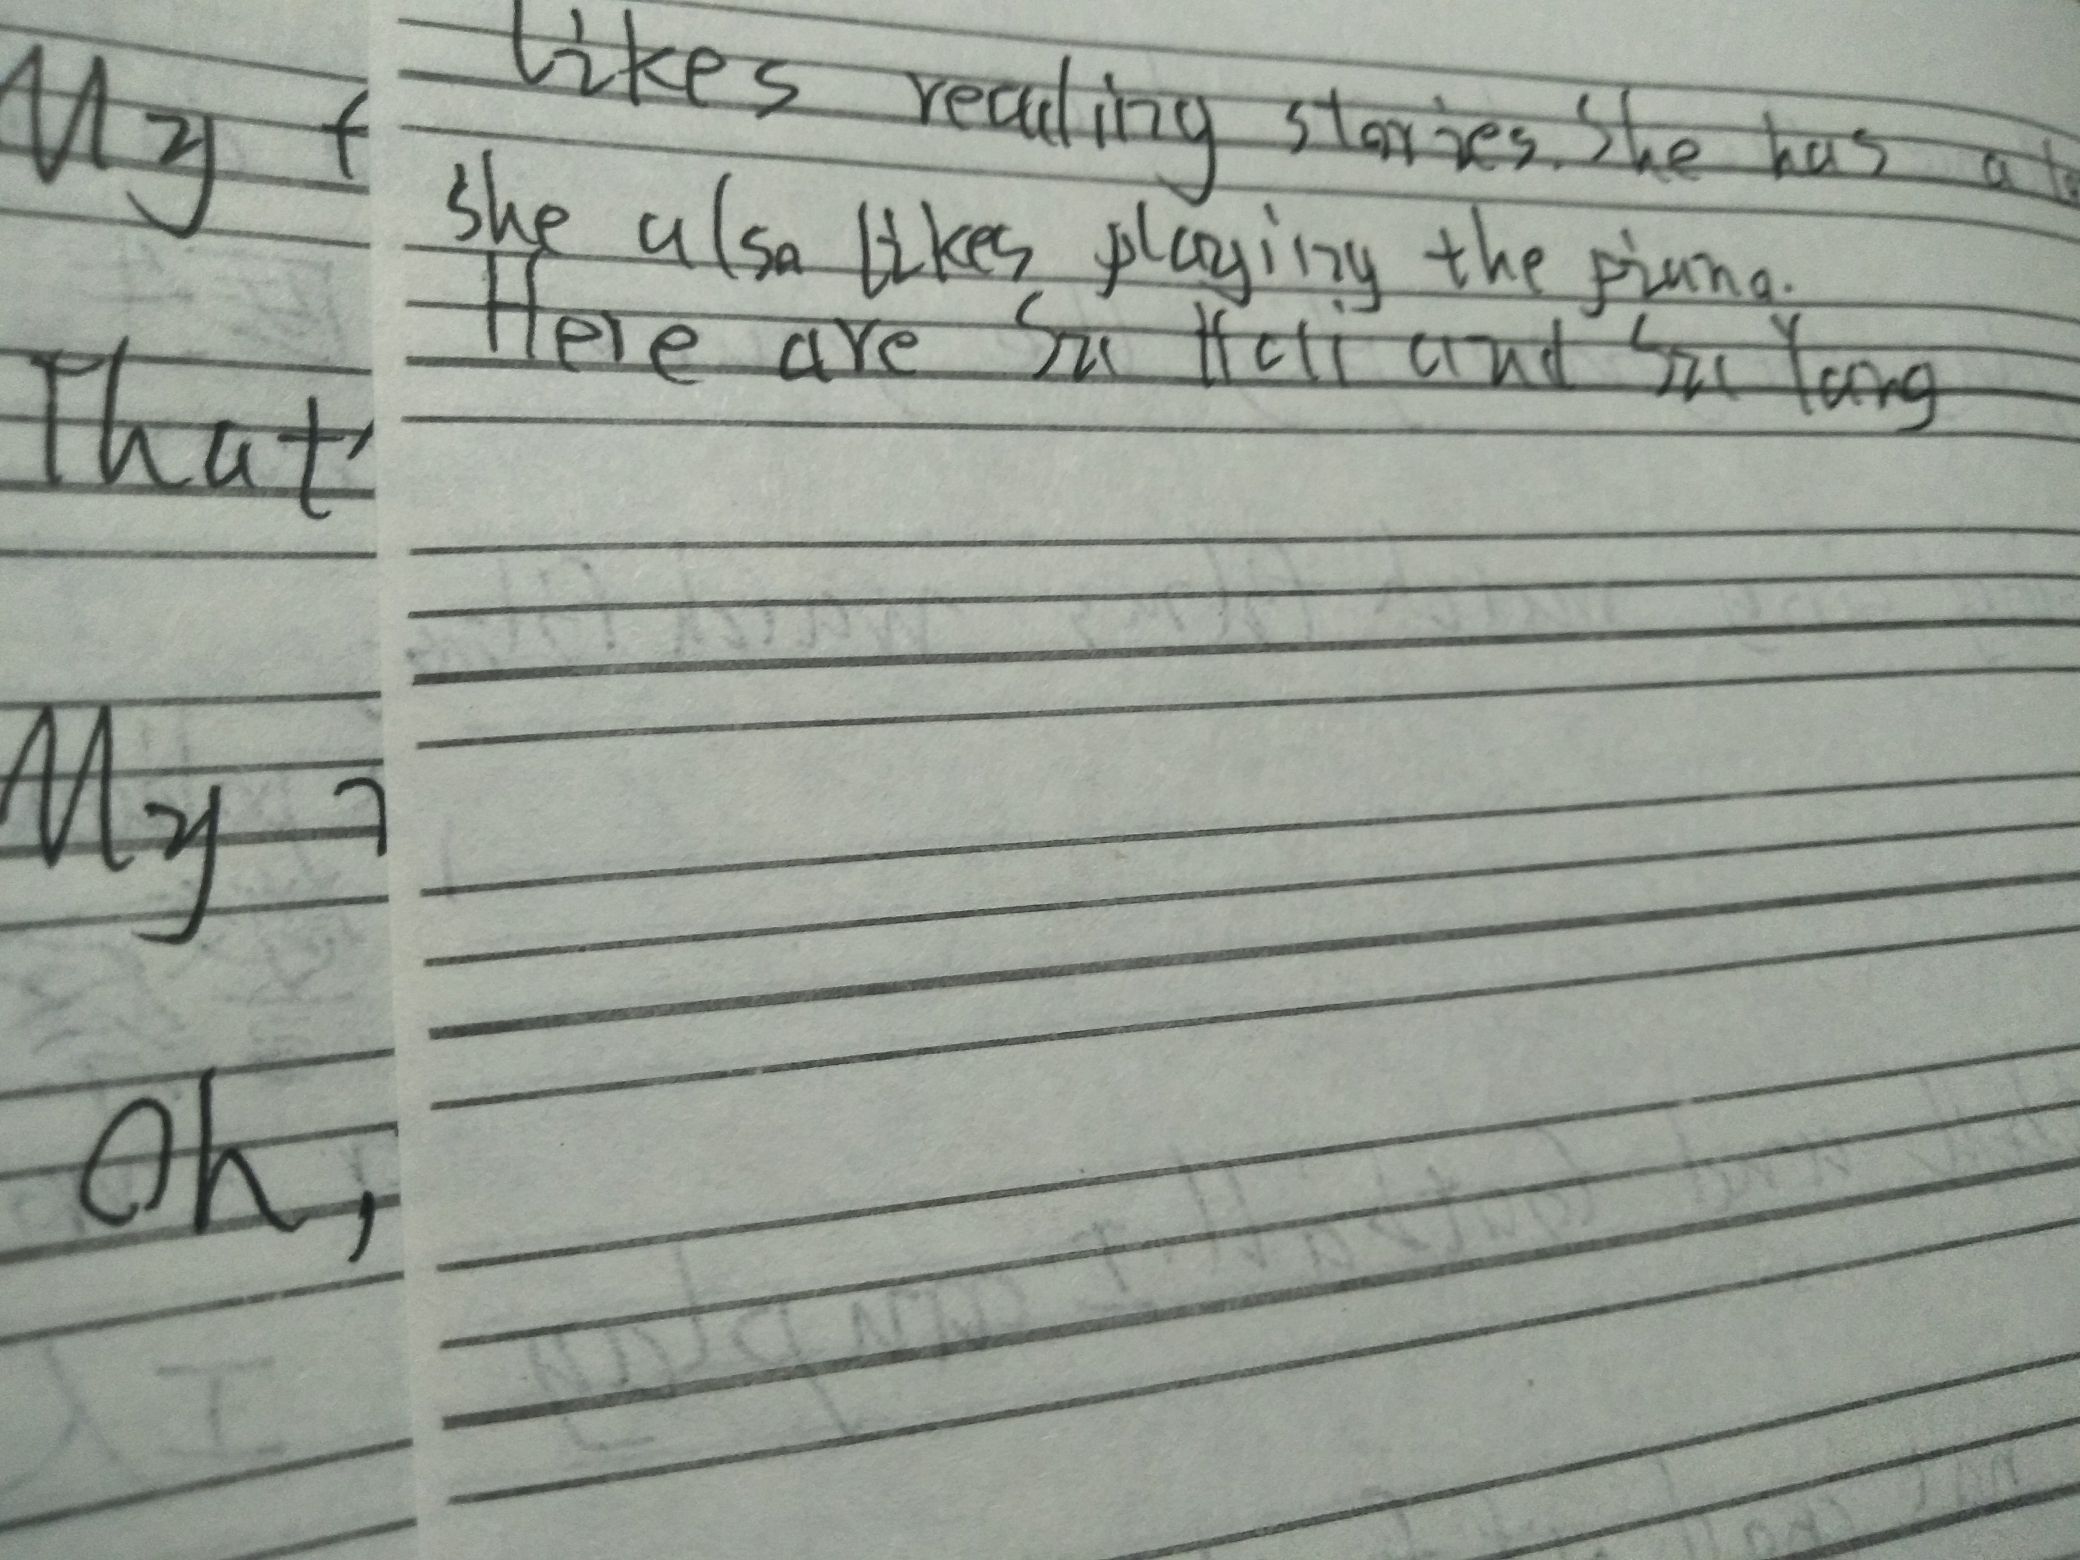 likes reading stories. She has a
She also likes playing the piano.
Here are Su Hai and Su Yang
My
That'
My
Oh,